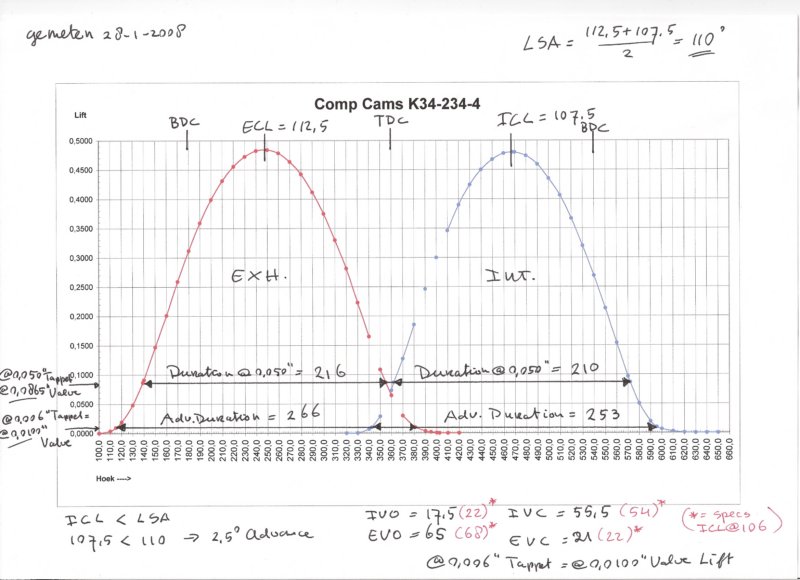 gemeten 28-1-2008
LSA = 112,5+107,5 / 2 = 110°
Comp Cams K34-234-4
Lift
BDC
ECL = 112,5
TDC
ICL = 107.5
BDC
0,5000
0,4500
0,4000
0,3500
0,3000
0,2500
0,2000
0,1500
0,1000
0,0500
0,0000
EXH.
INT.
@0,050" Tappet
@0,0865" Valve
@0,006" Tappet =
@0,0100" Valve
Duration @ 0,050" = 216
Duration @ 0,050" = 210
Adv. Duration = 266
Adv. Duration = 253
100,0 110,0 120,0 130,0 140,0 150,0 160,0 170,0 180,0 190,0 200,0 210,0 220,0 230,0 240,0 250,0 260,0 270,0 280,0 290,0 300,0 310,0 320,0 330,0 340,0 350,0 360,0 370,0 380,0 390,0 400,0 410,0 420,0 430,0 440,0 450,0 460,0 470,0 480,0 490,0 500,0 510,0 520,0 530,0 540,0 550,0 560,0 570,0 580,0 590,0 600,0 610,0 620,0 630,0 640,0 650,0 660,0
Hoek ---->
ICL < LSA
107,5 < 110 → 2,5° Advance
IVO = 17,5 (22)* IVC = 55,5 (54)*
EVO = 65 (68)* EVC = 21 (22)*
(*= specs
ICL@106)
@0,006" Tappet = @0,0100" Valve Lift